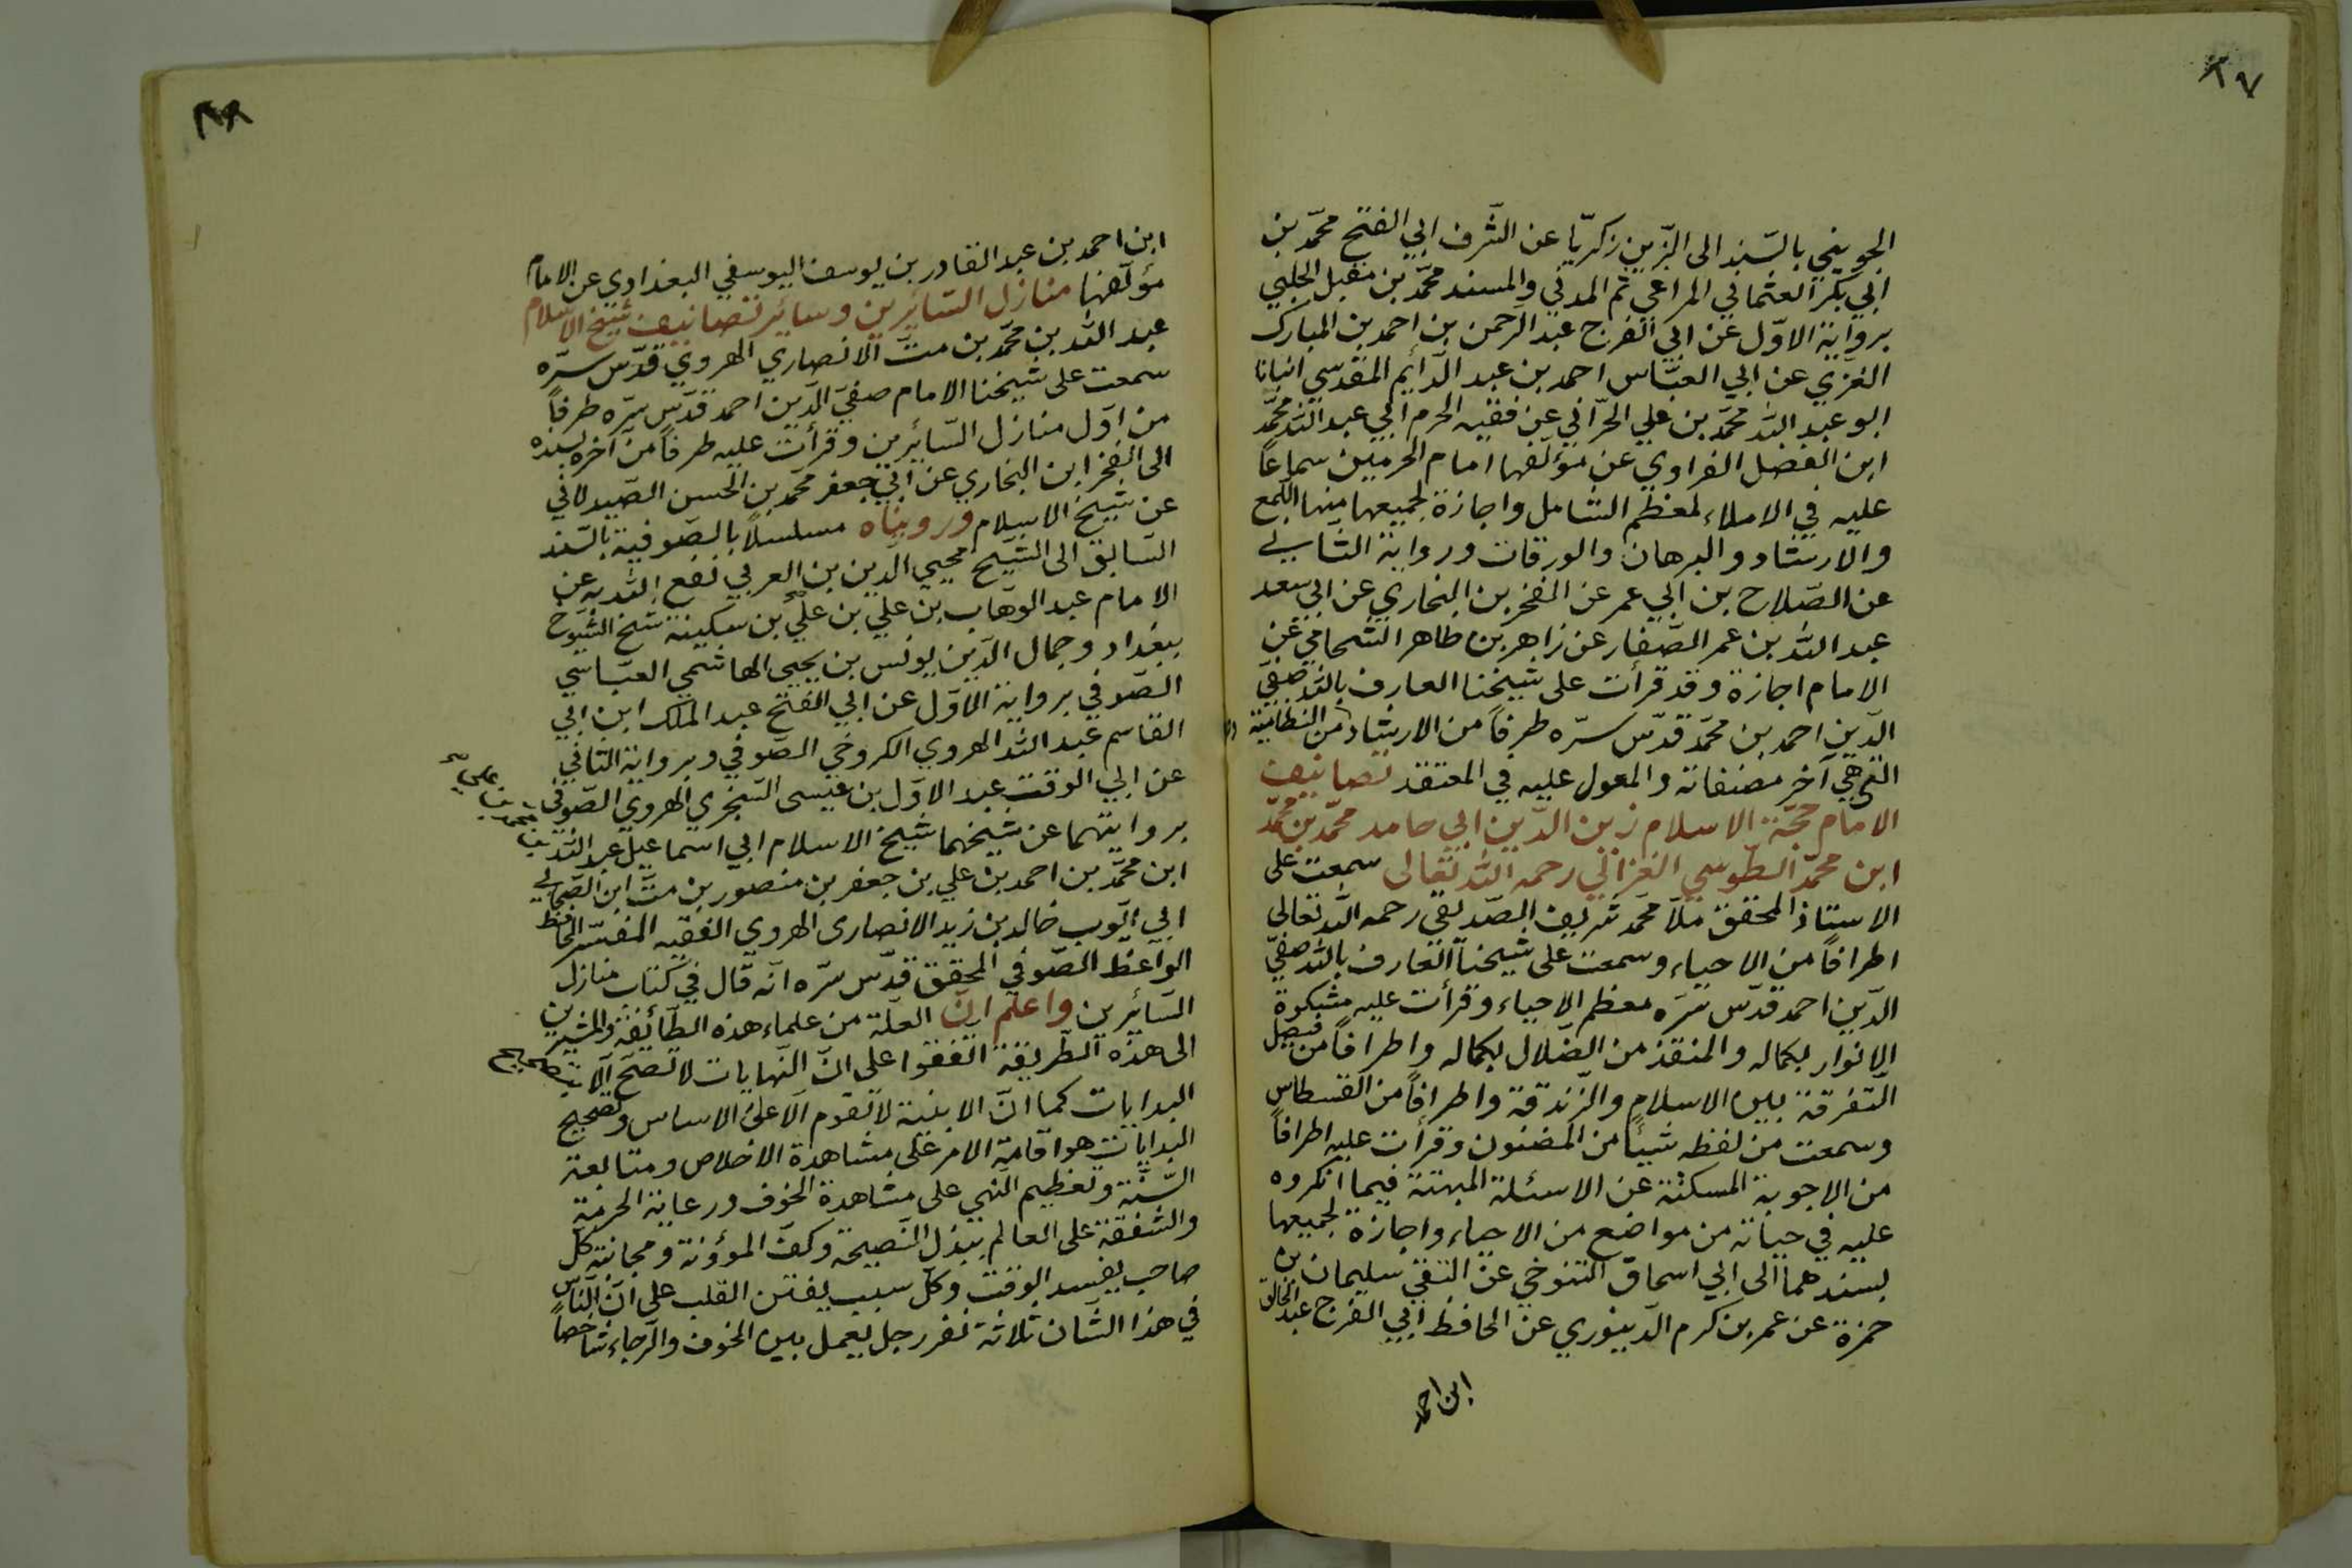 ٨٧
الجويني بالسّند الى الزّين زكريّا عن الشّرف ابي الفتح محمّد بن
ابي بكر العثماني المراغي ثم المدني والمسند محمّد بن مقبل الحلبي
برواية الاوّل عن ابي الفرج عبد الرّحمن بن احمد بن المبارك
الغزّي عن ابي العبّاس احمد بن عبد الدّايم المقدسي انبانا
ابو عبد الله محمّد بن علي الحرّاني عن فقيه الحرم ابي عبد الله محمّد
ابن الفضل الفراوي عن مؤلّفها امام الحرمين سماعًا
عليه في الاملاء لمعظم الشامل واجازة لجميعها منها اللّمع
والارشاد والبرهان والورقات ورواية الثاني
عن الصّلاح بن ابي عمر عن الفخر بن البخاري عن ابي سعد
عبد الله بن عمر الصّفار عن زاهر بن طاهر الشّحامي عن
الامام اجازة وقد قرأت على شيخنا العارف بالله صفيّ
الدّين احمد بن محمّد قدّس سرّه طرفًا من الارشاد من النظاميّة
التي هي آخر مصنفاته والمعول عليه في المعتقد تصانيف
الامام حجّة الاسلام زين الدّين ابي حامد محمّد بن محمّد
ابن محمّد الطّوسي الغزالي رحمه الله تعالى سمعت على
الاستاذ المحقق ملّا محمّد شريف الصّديقي رحمه الله تعالى
اطرافًا من الاحياء وسمعت على شيخنا العارف بالله صفيّ
الدّين احمد قدّس سرّه معظم الاحياء وقرأت عليه مشكوة
الانوار بكماله والمنقذ من الضّلال بكماله واطرافًا من فيصل
التّفرقة بين الاسلام والزّندقة واطرافًا من القسطاس
وسمعت من لفظه شيئًا من المضنون وقرأت عليه اطرافًا
من الاجوبة المسكتة عن الاسئلة المبهتة فيما انكروه
عليه في حياته من مواضع من الاحياء واجازة لجميعها
بسندهما الى ابي اسحاق التنوخي عن التقي سليمان بن
حمزة عن عمر بن كرم الدّينوري عن الحافظ ابي الفرج عبد الخالق
ابن احمد
٨٨
ابن احمد بن عبد القادر بن يوسف اليوسفي البغدادي عن الامام
مؤلّفها منازل السّائرين وسائر تصانيف شيخ الاسلام
عبد الله بن محمّد بن متّ الانصاري الهروي قدّس سرّه
سمعت على شيخنا الامام صفيّ الدّين احمد قدّس سرّه طرفًا
من اوّل منازل السّائرين وقرأت عليه طرفًا من آخره بسنده
الى الفخر ابن البخاري عن ابي جعفر محمّد بن الحسن الصّيدلاني
عن شيخ الاسلام ورويناه مسلسلًا بالصّوفية بالسّند
السّابق الى الشّيخ محيي الدّين بن العربي نفع الله به عن
الامام عبد الوهّاب بن علي بن علي بن سكينة شيخ الشّيوخ
ببغداد وجمال الدّين يونس بن يحيى الهاشمي العبّاسي
الصّوفي برواية الاوّل عن ابي الفتح عبد الملك ابن ابي
القاسم عبد الله الهروي الكروخي الصّوفي وبرواية الثاني
عن ابي الوقت عبد الاوّل بن عيسى السّجزي الهروي الصّوفي
بروايتهما عن شيخهما شيخ الاسلام ابي اسماعيل عبد الله
ابن محمّد بن احمد بن علي بن جعفر بن منصور بن متّ ابن الصّحابي
ابي ايّوب خالد بن زيد الانصاري الهروي الفقيه المفسّر الحافظ
الواعظ الصّوفي المحقق قدّس سرّه انّه قال في كتاب منازل
السّائرين واعلم انّ العلّة من علماء هذه الطّائفة والمشيرين
الى هذه الطّريقة اتّفقوا على انّ النّهايات لا تصحّ الّا بتصحيح
البدايات كما انّ الابنية لا تقوم الّا على الاساس وتصحيح
البدايات هو اقامة الامر على مشاهدة الاخلاص ومتابعة
السّنّة وتعظيم النّهي على مشاهدة الخوف ورعاية الحرمة
والشّفقة على العالم ببذل النّصيحة وكفّ المؤونة ومجانبة كلّ
صاحب يفسد الوقت وكلّ سبب يفتن القلب على انّ النّاس
في هذا الشّان ثلاثة نفر رجل يعمل بين الخوف والرّجاء شاخصًا